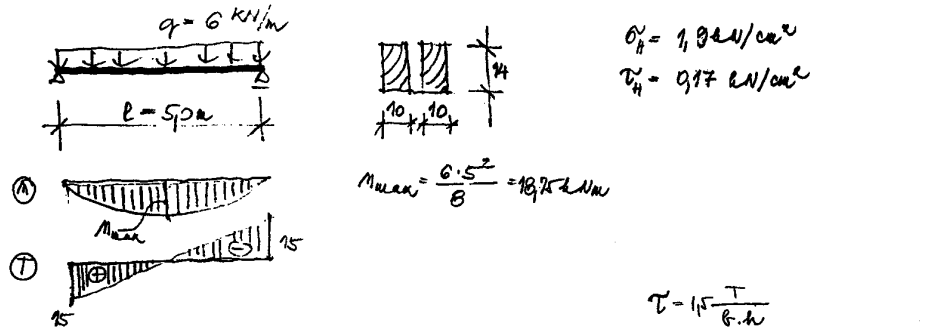 q = 6 kN/m
l = 5,0 m
14
10 10
σH = 1,9 kN/cm²
τH = 0,17 kN/cm²
M
Mmax
Mmax = 6·5²/8 = 18,75 kNm
T
+
−
15
15
τ = 1,5 T/b.h